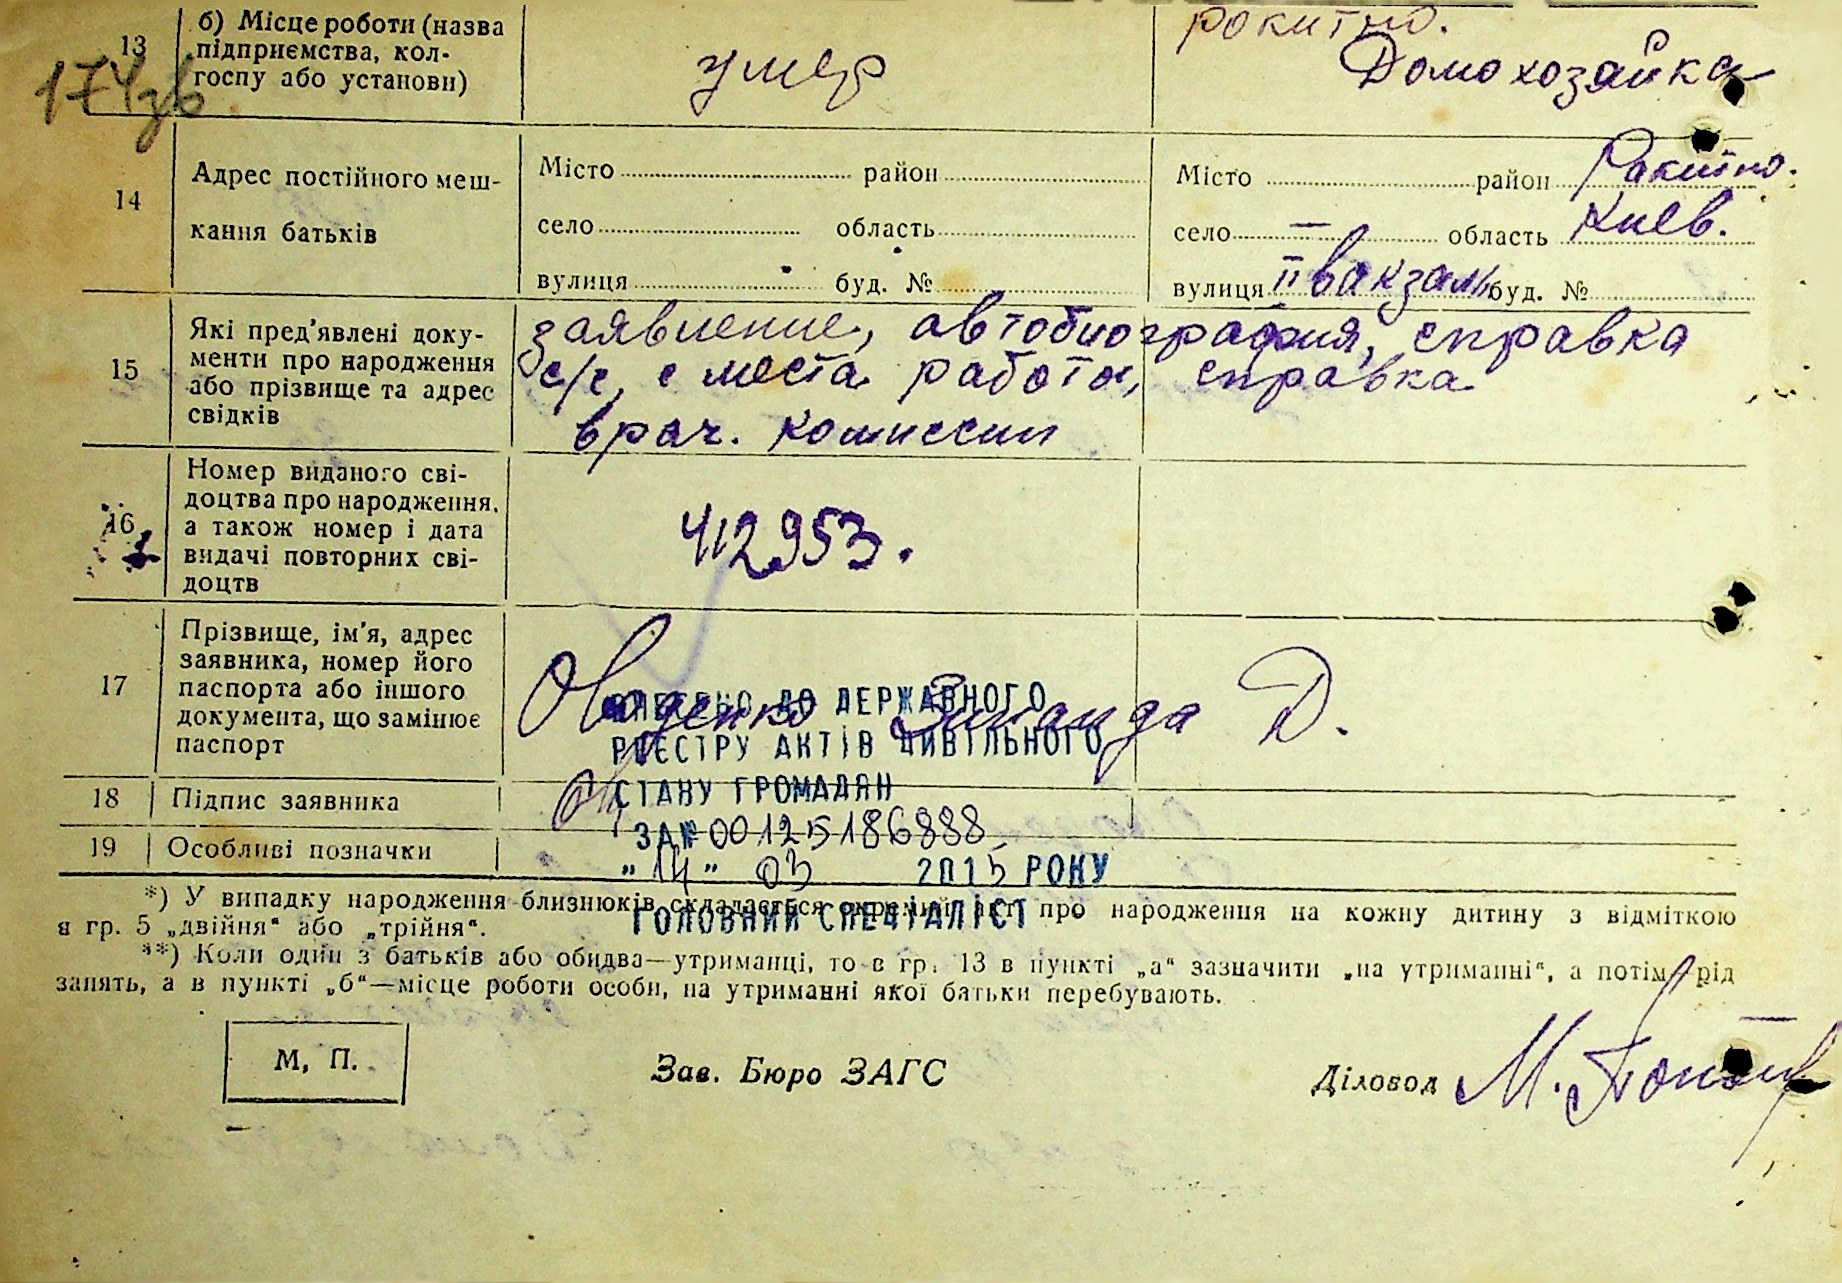 13
б) Місце роботи (назва
підприємства, кол-
госпу або установи)
умер
Рокитно.
Домохозяйка
174зв
14
Адрес постійного меш-
кання батьків
Місто район
село область
вулиця буд. №
Місто район Ракитно.
село — область Киев.
вулиця II вакзал. буд. №
15
Які пред'явлені доку-
менти про народження
або прізвище та адрес
свідків
заявление, автобиография, справка
с/с, с места работы, справка
врач. комиссии
16
Номер виданого сві-
доцтва про народження,
а також номер і дата
видачі повторних сві-
доцтв
412953.
17
Прізвище, ім'я, адрес
заявника, номер його
паспорта або іншого
документа, що замінює
паспорт
Зинаида Д.
ВНЕСЕНО ДО ДЕРЖАВНОГО
РЕЄСТРУ АКТІВ ЦИВІЛЬНОГО
СТАНУ ГРОМАДЯН
ЗА № 00125186888
"14" 03 2015 РОКУ
ГОЛОВНИЙ СПЕЦІАЛІСТ
18 Підпис заявника
19 Особливі позначки
*) У випадку народження близнюків складається окремий акт про народження на кожну дитину з відміткою
в гр. 5 „двійня" або „трійня".
**) Коли один з батьків або обидва—утриманці, то в гр. 13 в пункті „а" зазначити „на утриманні", а потім рід
занять, а в пункті „б"—місце роботи особи, на утриманні якої батьки перебувають.
М, П.
Зав. Бюро ЗАГС
Діловод М.